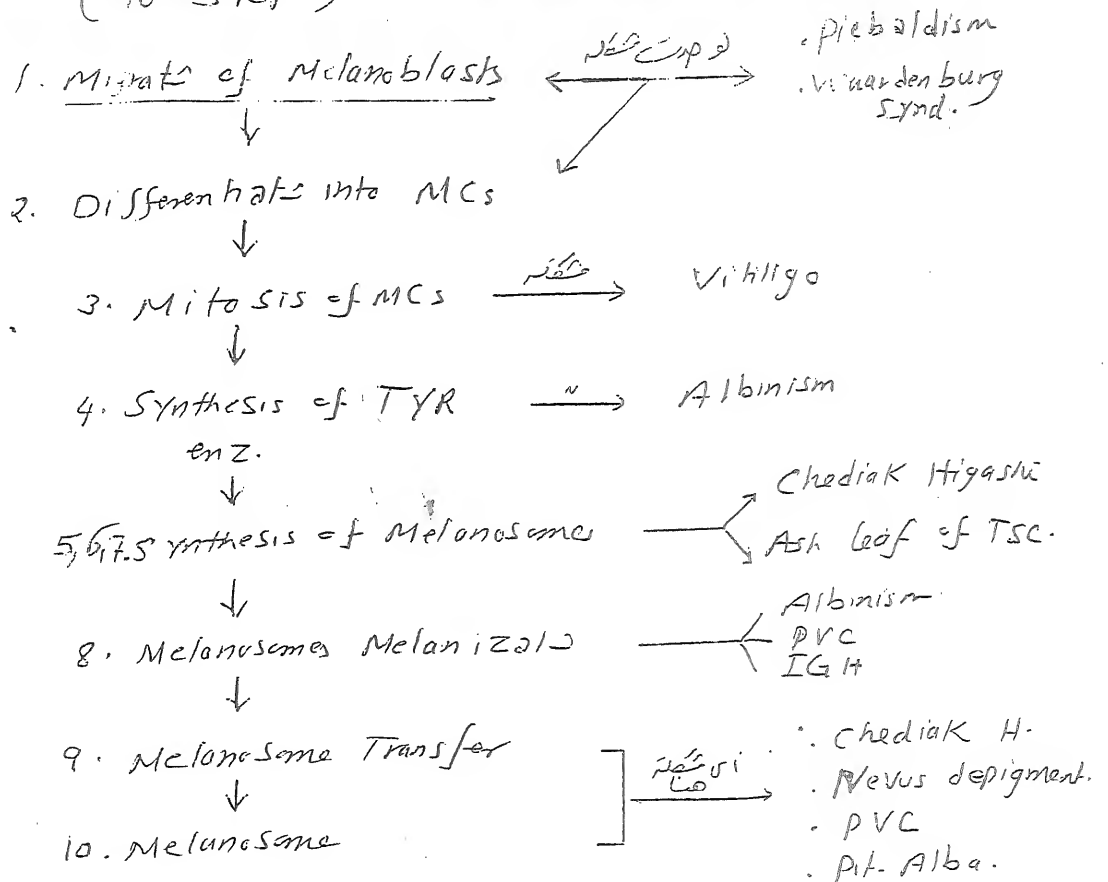 لو حدث مشكلة
. Piebaldism
1. Migrat⁼ of Melanoblasts
. Waardenburg
Synd.
2. Differentiat⁼ into MCs
3. Mitosis of MCs
مشكلة
Vitiligo
4. Synthesis of TYR
enz.
〃
Albinism
5,6,7. Synthesis of Melanosomes
Chediak Higashi
Ash leaf of TSC.
8. Melanosomes Melanizat⁼
Albinism
PVC
IGH
9. Melanosome Transfer
10. Melanosome
أى مشكلة
هنا
. Chediak H.
. Nevus depigment.
. PVC
. Pit. Alba.